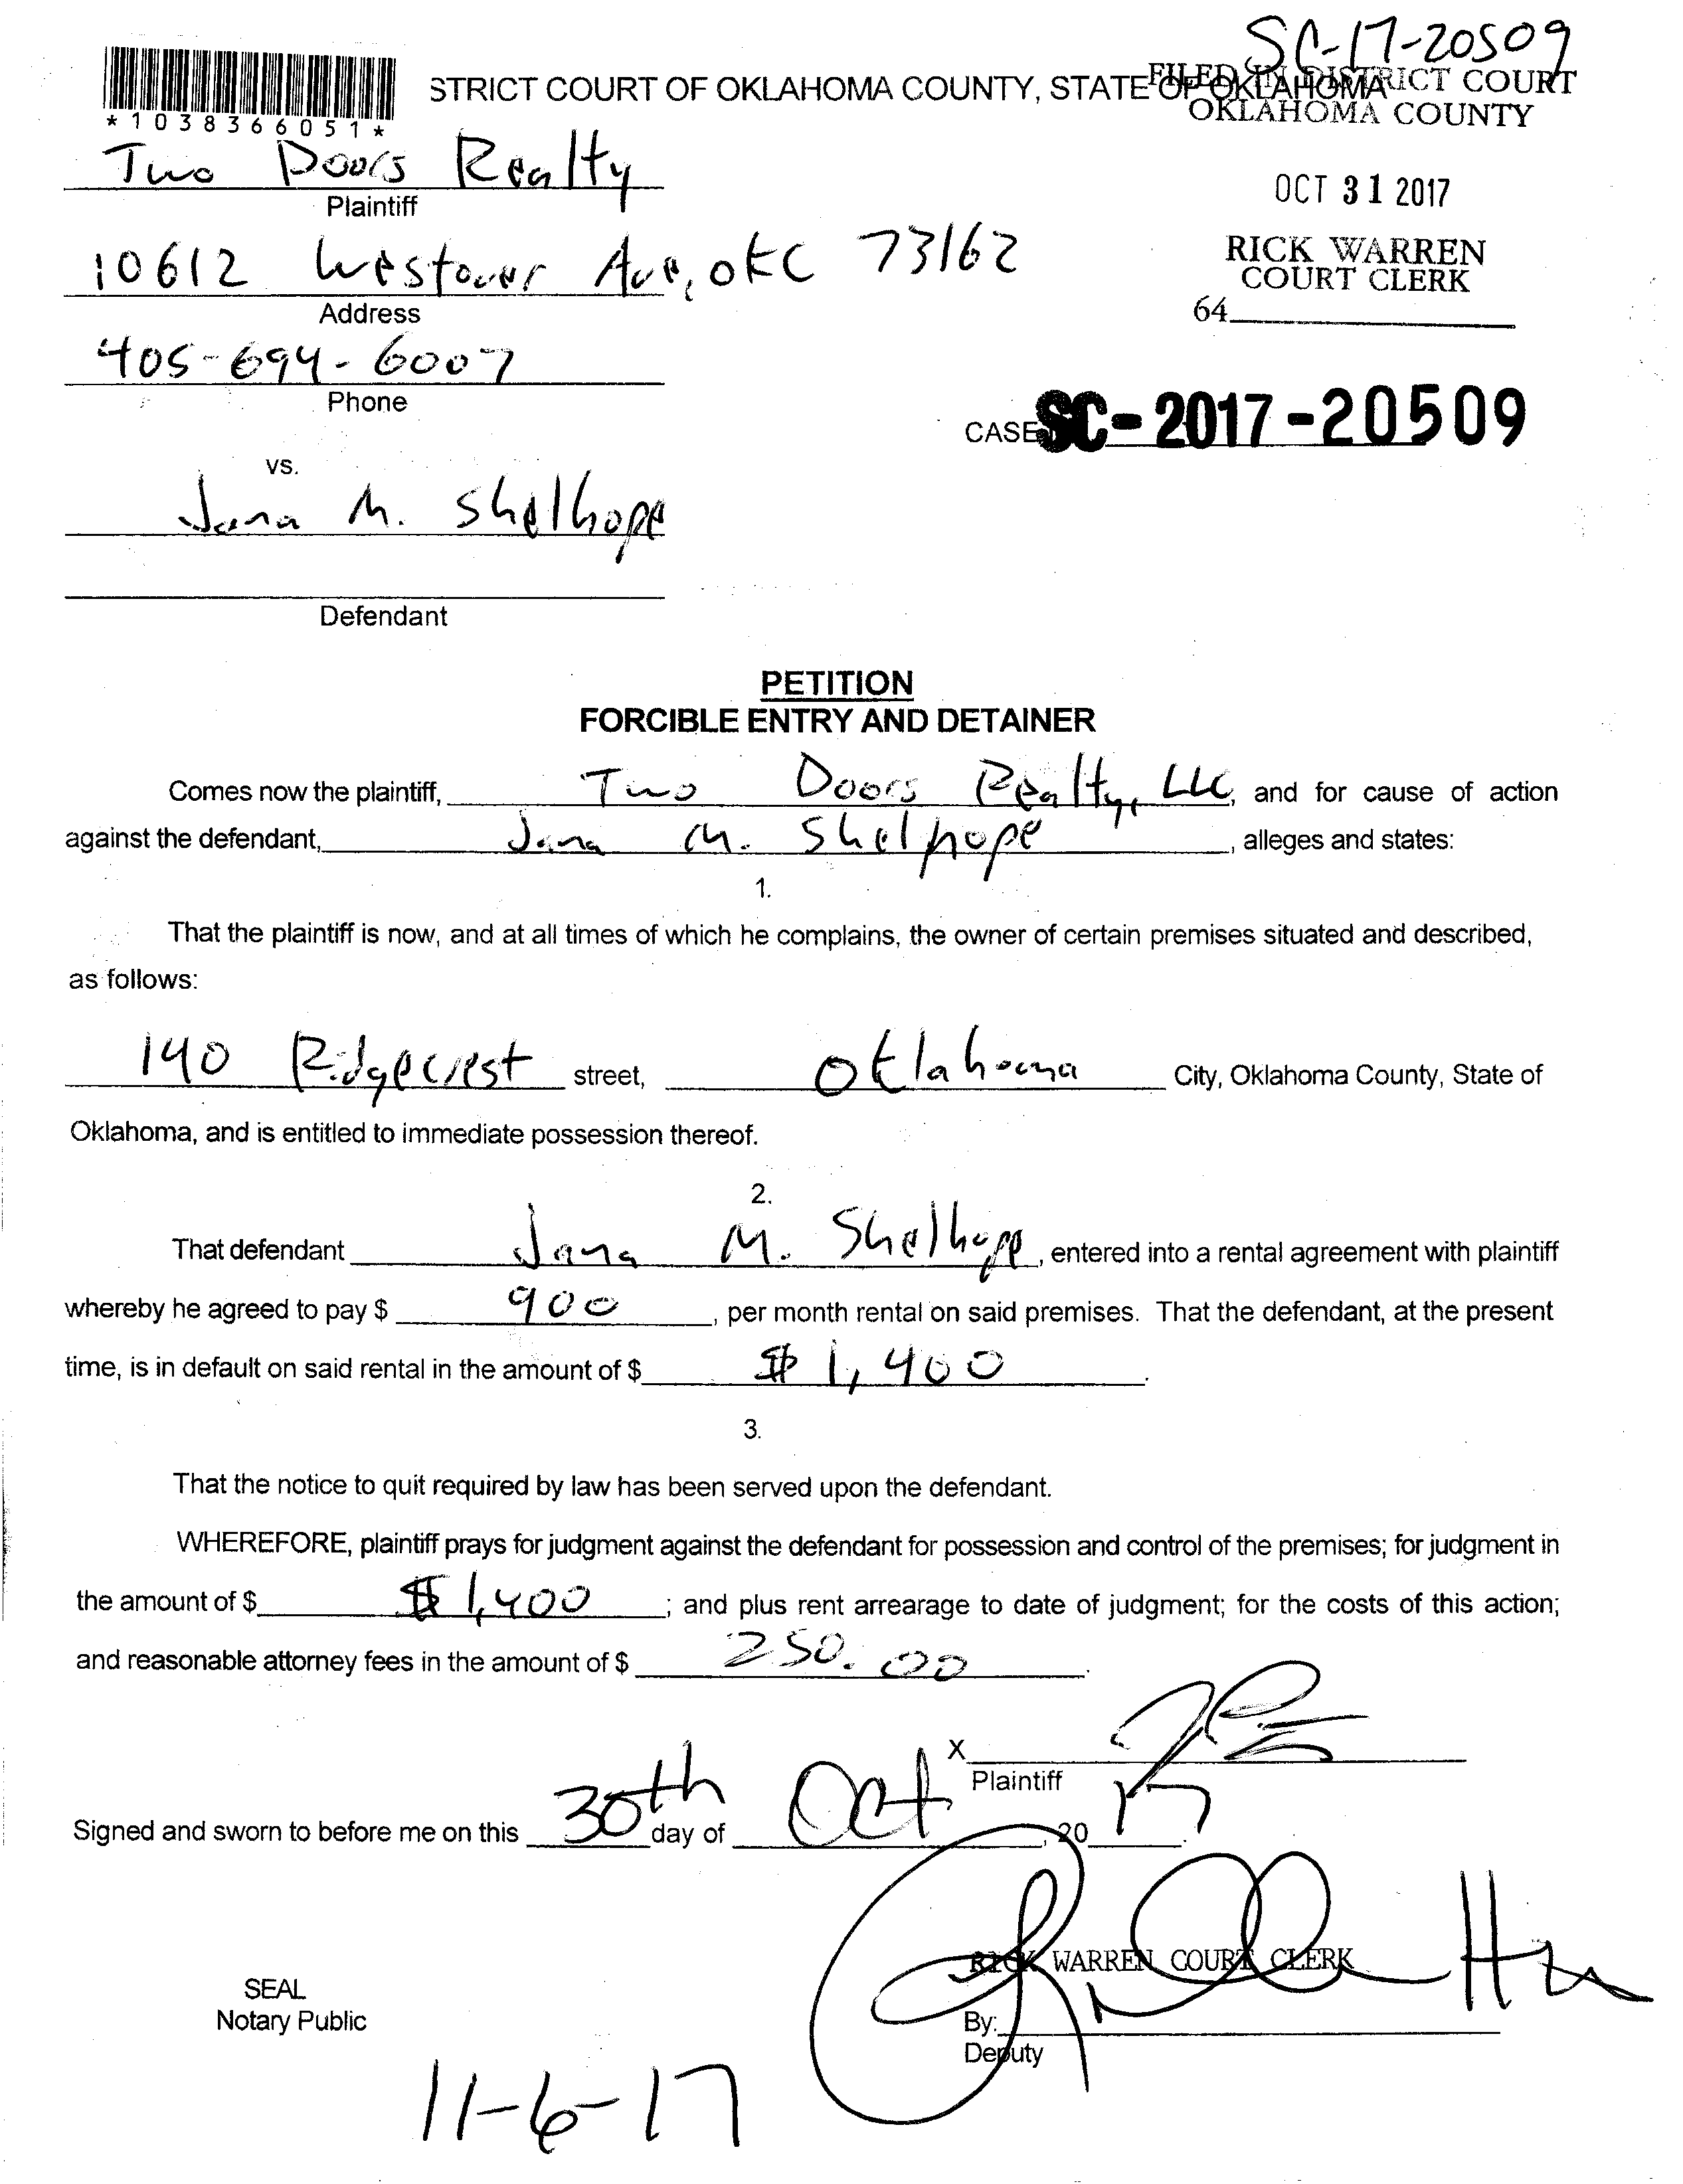 SC-17-20509
STRICT COURT OF OKLAHOMA COUNTY, STATE OF OKLAHOMA
FILED IN DISTRICT COURT
OKLAHOMA COUNTY
*1038366051*
Two Doors Realty
Plaintiff
OCT 31 2017
10612 Westover Ave, OKC 73162
Address
RICK WARREN
COURT CLERK
64
405-694-6007
Phone
CASE SC-2017-20509
vs.
Jana M. Shelhope
Defendant
PETITION
FORCIBLE ENTRY AND DETAINER
Comes now the plaintiff, Two Doors Realty, LLC, and for cause of action
against the defendant, Jana M. Shelhope, alleges and states:
1.
That the plaintiff is now, and at all times of which he complains, the owner of certain premises situated and described,
as follows:
140 Ridgecrest street, Oklahoma City, Oklahoma County, State of
Oklahoma, and is entitled to immediate possession thereof.
2.
That defendant Jana M. Shelhope, entered into a rental agreement with plaintiff
whereby he agreed to pay $ 900, per month rental on said premises. That the defendant, at the present
time, is in default on said rental in the amount of $ $ 1,400.
3.
That the notice to quit required by law has been served upon the defendant.
WHEREFORE, plaintiff prays for judgment against the defendant for possession and control of the premises; for judgment in
the amount of $ $ 1,400; and plus rent arrearage to date of judgment; for the costs of this action;
and reasonable attorney fees in the amount of $ 250.00.
X
Plaintiff
Signed and sworn to before me on this 30th day of Oct, 2017.
RICK WARREN COURT CLERK
SEAL
Notary Public
By:
Deputy
11-6-17